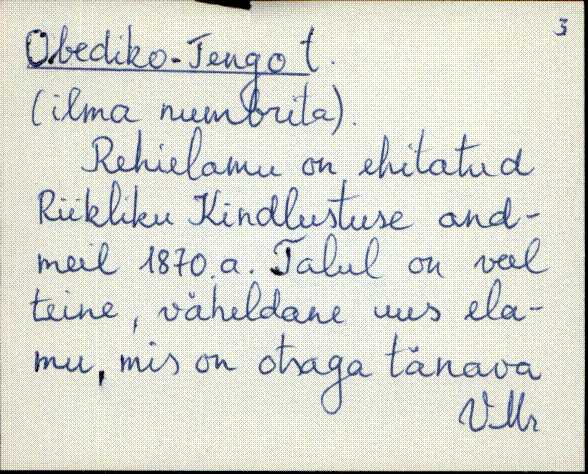 3
Obediko-Tengo t.
(ilma numbrita).
Rehielamu on ehitatud
Riikliku Kindlustuse and-
meil 1870.a. Talul on veel
teine, väheldane uus ela-
mu, mis on otsaga tänava
VMr